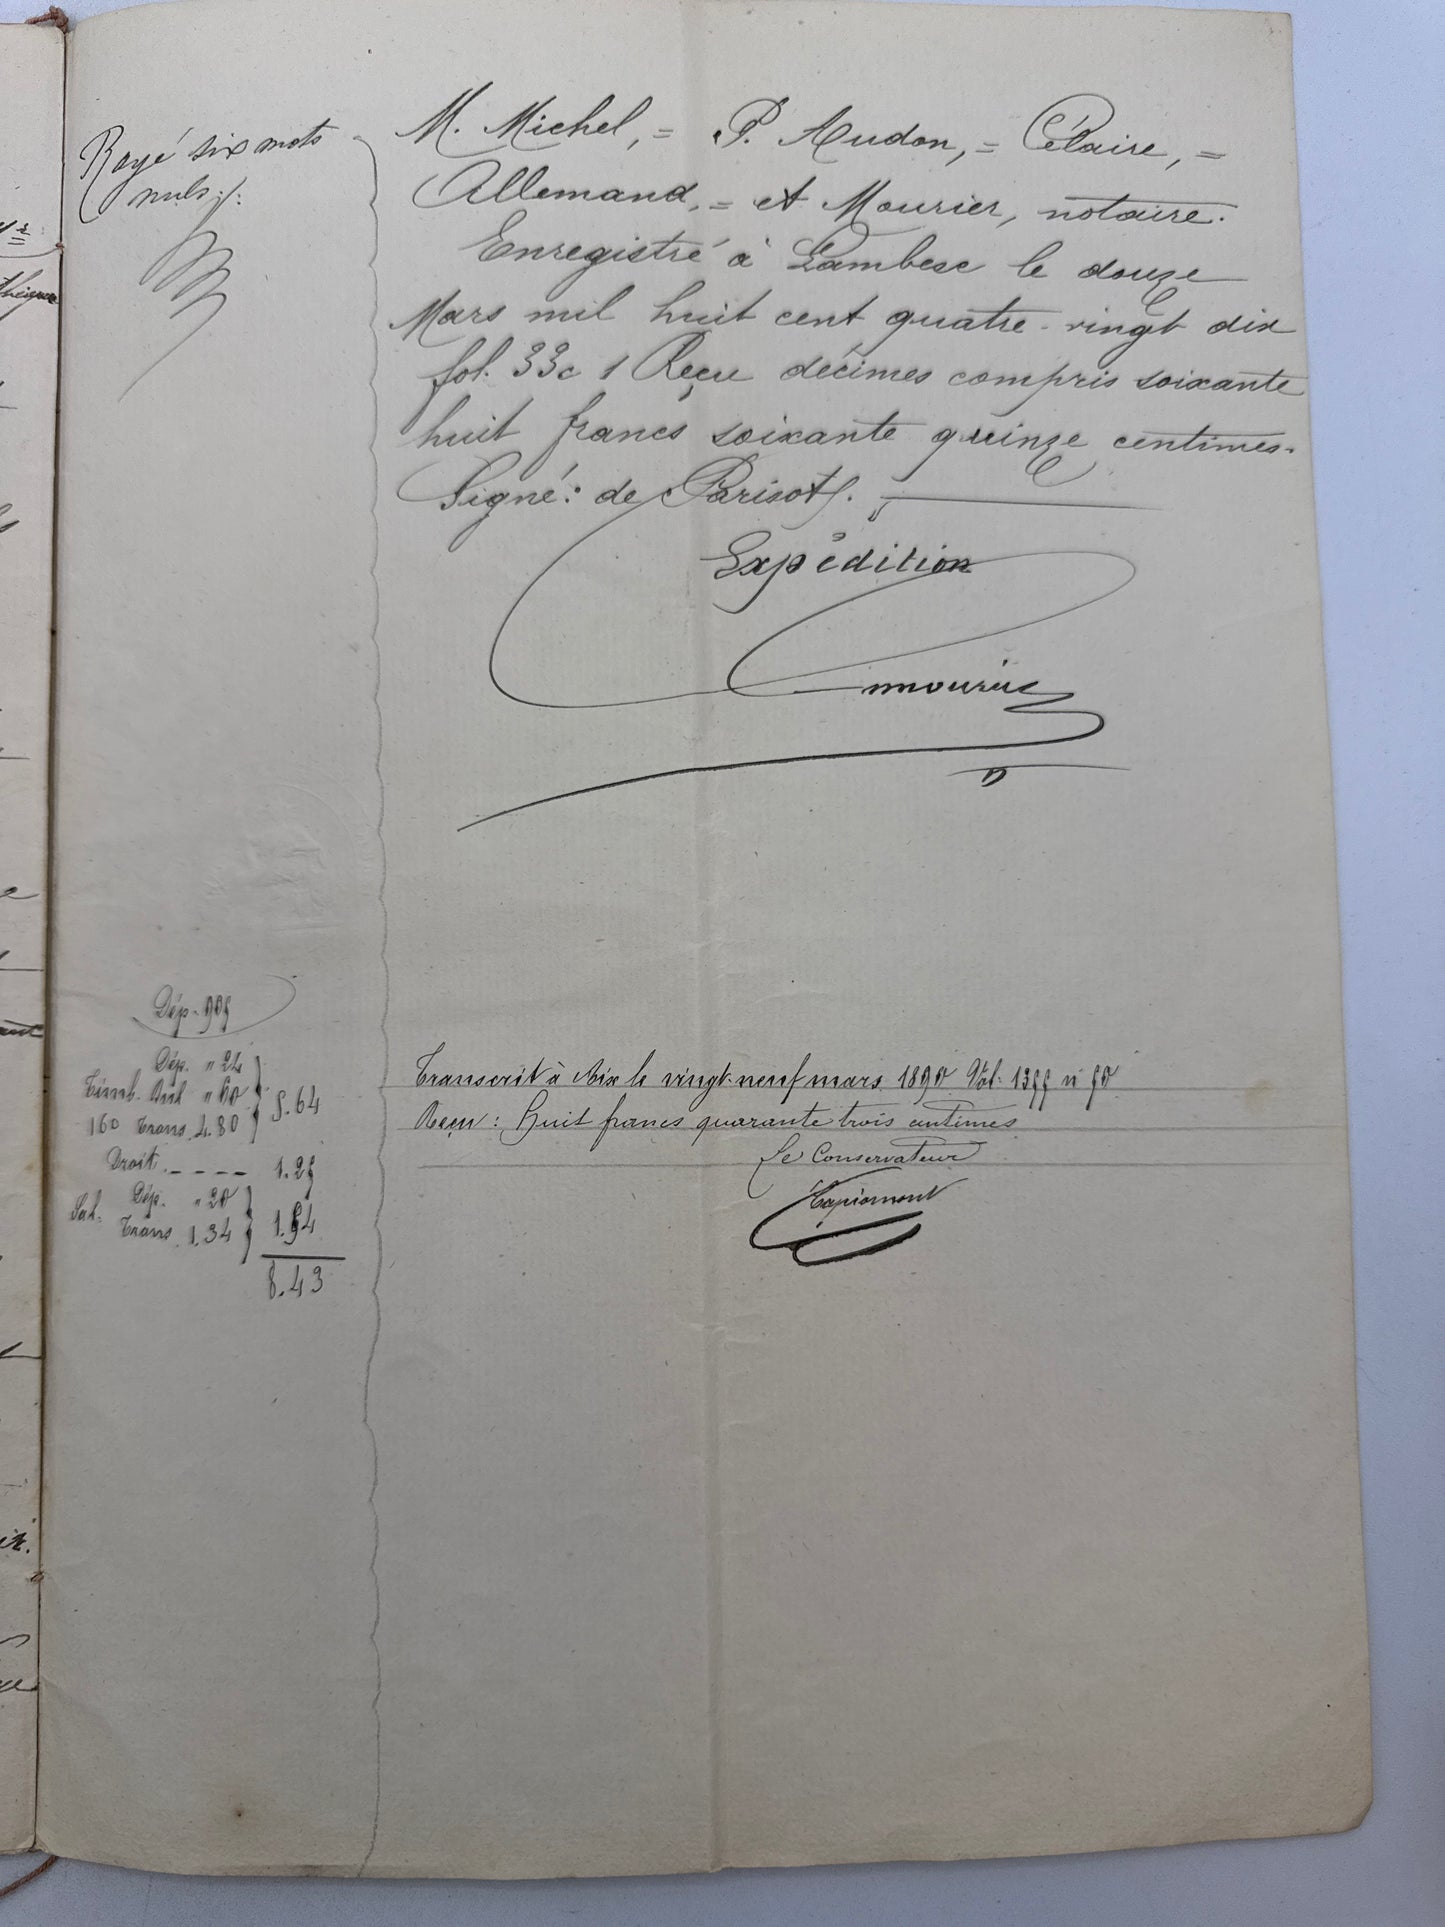 Rayé six mots
nuls ./.
M. Michel, = P. Audon, = Célaire, =
Allemand, = et Mourier, notaire.
Enregistré à Lambesc le douze
Mars mil huit cent quatre-vingt dix
fol. 33 c 1 Reçu décimes compris soixante
huit francs soixante quinze centimes.
Signé: de Parisot /.
Expédition
mourier
Dép.
Dép. " 24
Timb. " 60
160 Trans. 4.80
5.64
Droit 1.25
Sal. Dép. " 20
Trans. 1.34
1.54
8.43
Transcrit à Aix le vingt-neuf mars 1890 Vol.
Reçu : huit francs quarante trois centimes
Le Conservateur